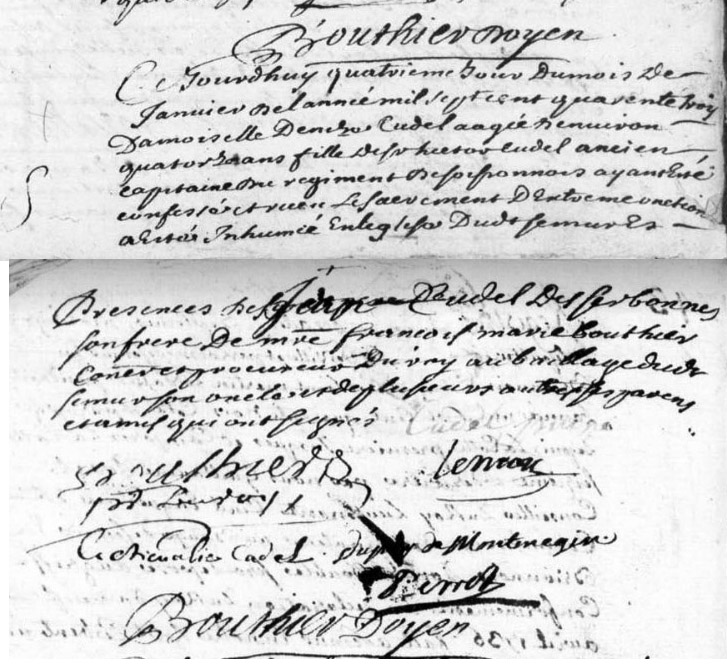 Bouthier Doyen
Ce Jourdhuy quatrieme Jour Dumois De
Janvier Delannié mil sept cent quarente troy
Damoiselle Cudel aagée Denviron
quatorze ans fille Desr hector Cudel ancien
Capitaine Du regiment Desoissonnois ayant Eté
confessée et receu Le sacrement D'Extreme onction
a Esté Inhumée En leglise Dudt semur Es
Presences Cudel Des serbonnes
son frere De mre francois marie bouthier
Coner et procureur Du roy au bailliage dudt
semur son oncle et de plusieurs autres parens
et amis qui ont signés
Bouthier
Le Chevalier Cudel Dupuy de Montmegin
Perrot
Bouthier Doyen